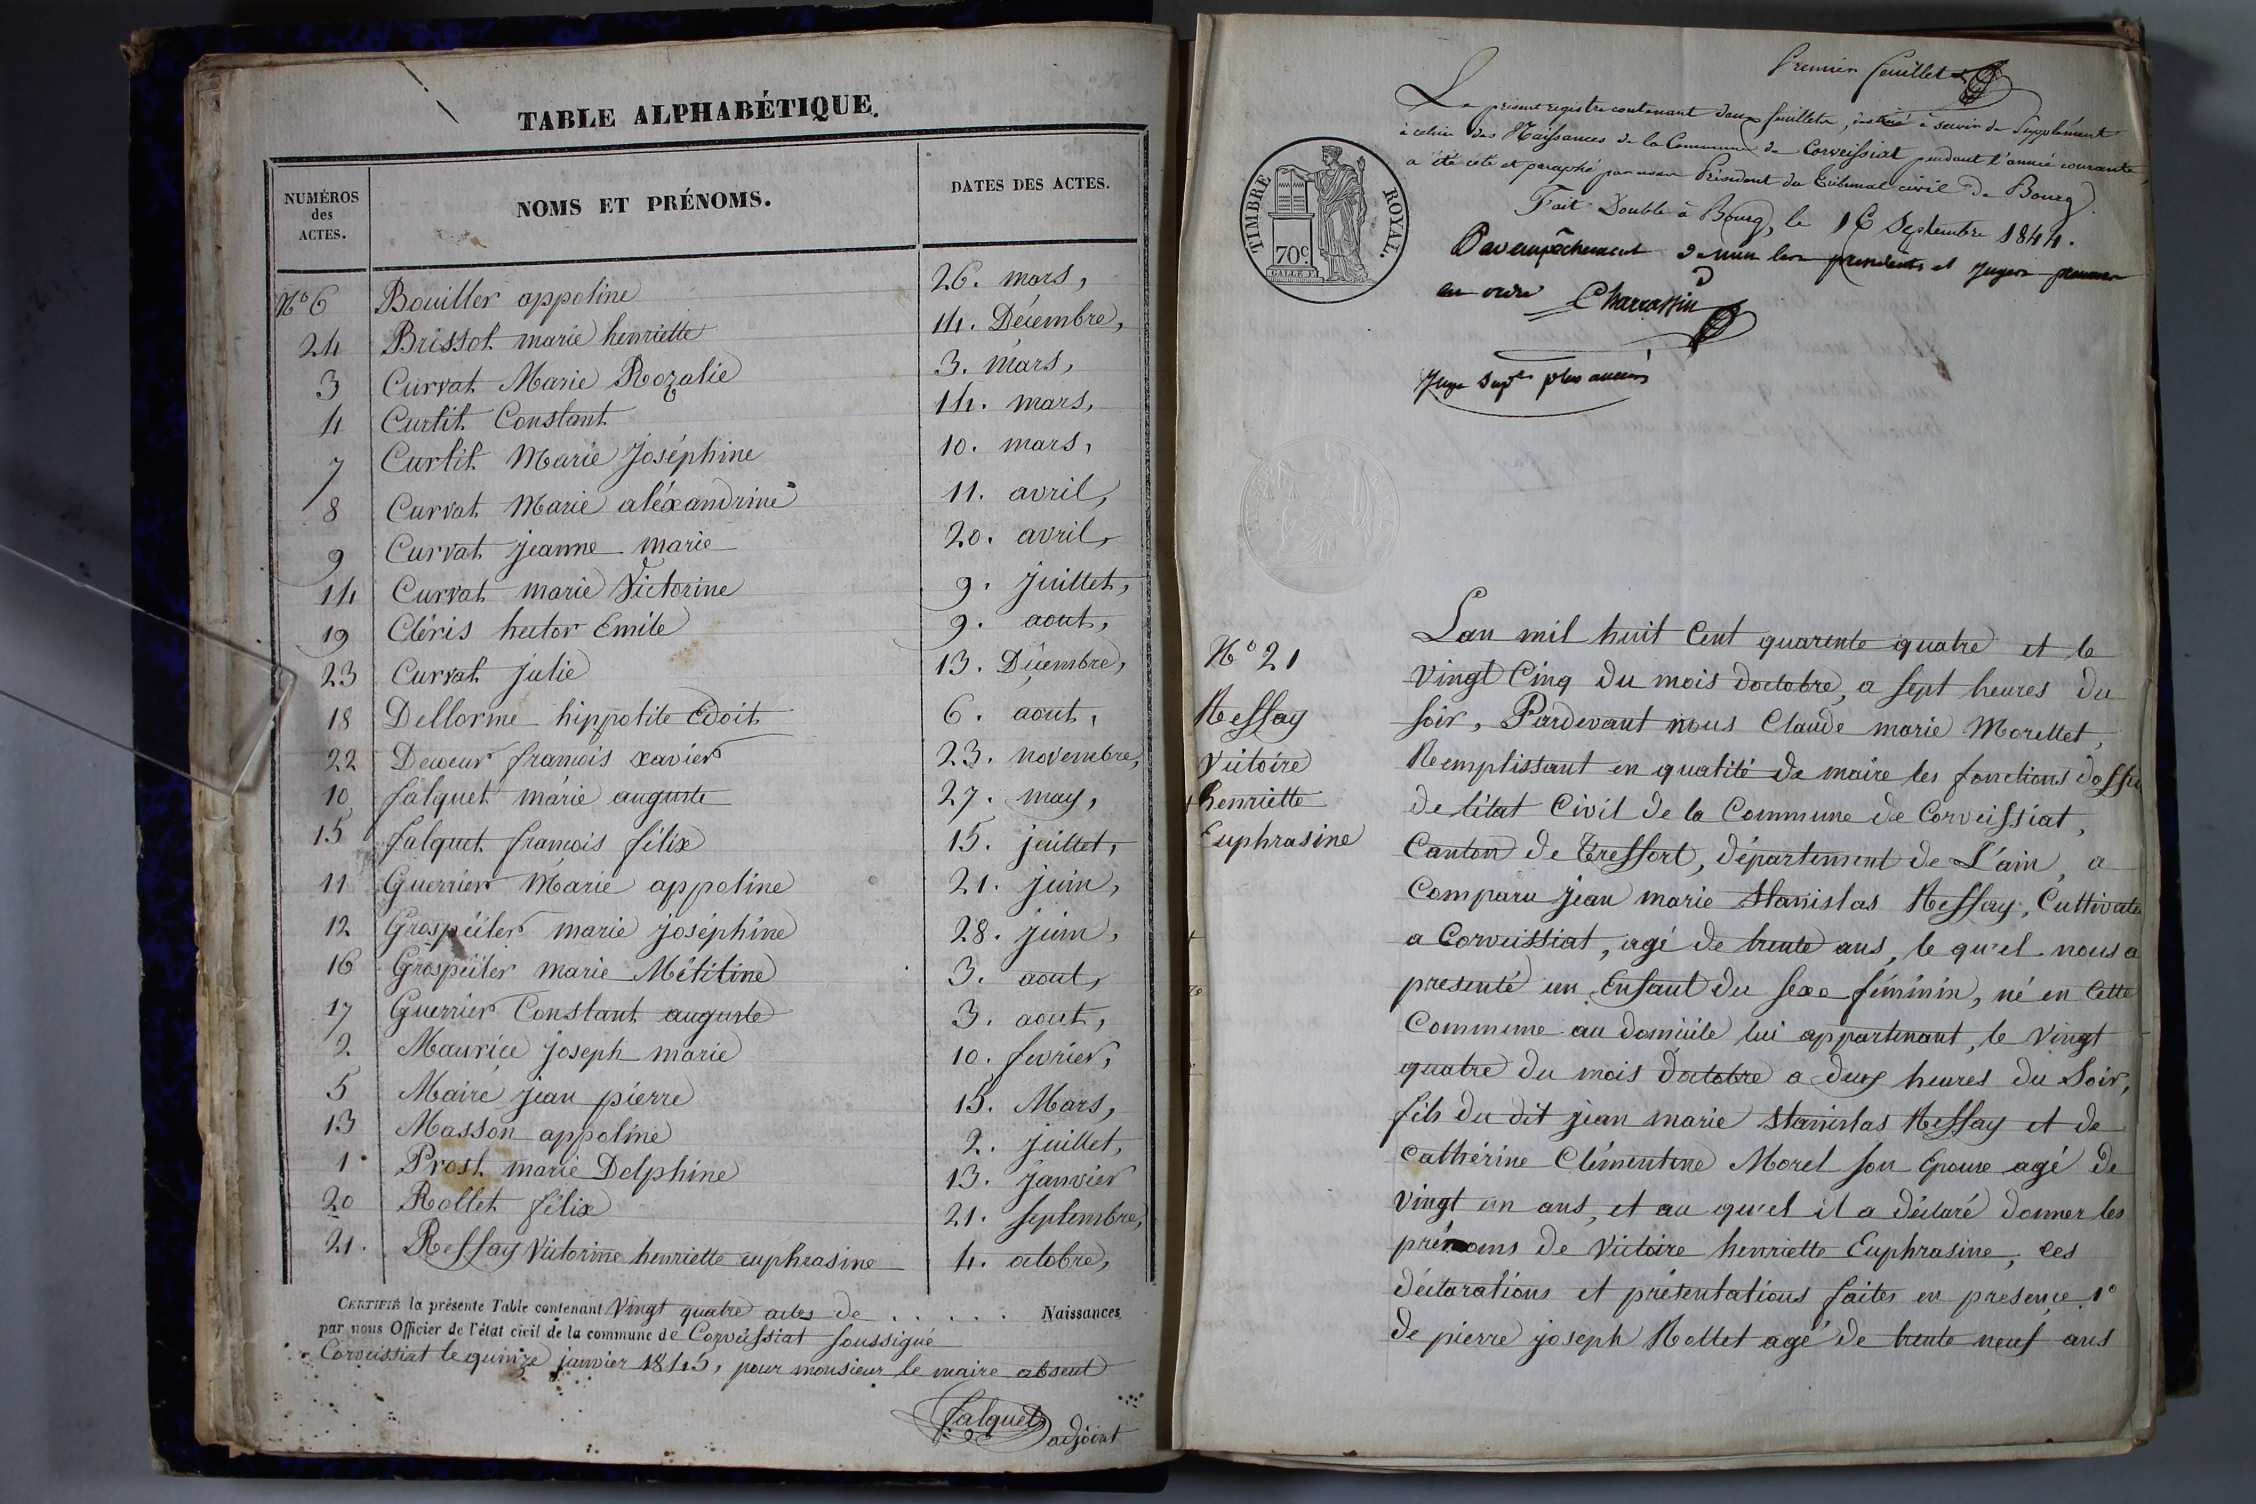 TABLE ALPHABÉTIQUE.
NUMÉROS des ACTES. NOMS ET PRÉNOMS. DATES DES ACTES.
N° 6 Bouiller appoline 26. mars,
24 Brissot marie henriette 14. Décembre,
3 Curvat Marie Rozalie 3. mars,
4 Curtit Constant 14. mars,
7 Curtit Marie Joséphine 10. mars,
8 Curvat Marie aléxandrine 11. avril,
9 Curvat jeanne marie 20. avril,
14 Curvat marie Victorine 9. juillet,
19 Cléris hector Emile 9. aout,
23 Curvat Julie 13. Décembre,
18 Dellorme hippolite Edoit 6. aout,
22 francois xavier 23. novembre,
10 falquet marie auguste 27. may,
15 falquet francois félix 15. juillet,
11 Guerrier Marie appoline 21. juin,
12 Grospeiller marie joséphine 28. juin,
16 Grospeiller marie Mélitine 3. aout,
17 Guerrier Constant auguste 3. aout,
2 Maurice joseph marie 10. fevrier,
5 Maire jean pierre 15. Mars,
13 Masson appoline 2. juillet,
1 Prost marie Delphine 13. janvier
20 Rollet félix 21. septembre,
21. Reffay Victorine henriette euphrasine 4. octobre,
CERTIFIÉ la présente Table contenant Vingt quatre actes de . . . . . Naissances
par nous Officier de l'état civil de la commune de Corveissiat soussigné
Corveissiat le quinze janvier 1845, pour monsieur le maire absent
falquet
adjoint
Premier feuillet
Le présent registre contenant deux feuillets, destiné à servir de Supplément
à celui des Naissances de la Commune de Corveissiat pendant l'année courante,
a été coté et paraphé par nous Président du Tribunal civil de Bourg.
Fait Double à Bourg, le 16 Septembre 1844.
Par empêchement de MM les présidents et juges premiers
en ordre Charcassin
Juge supt plus ancien
TIMBRE ROYAL.
70c.
N° 21
Reffay
Victoire
henriette
Euphrasine
Lan mil huit Cent quarente quatre et le
vingt Cinq du mois doctobre, a sept heures du
soir, Pardevant nous Claude marie Morellet,
Remplissant en qualité de maire les fonctions doffi
de létat Civil de la Commune de Corveissiat,
Canton de Treffort, département de L'ain, a
Comparu jean marie Stanislas Reffay, Cultivate
a Corveissiat, agé de trente ans, le qu'el nous a
presenté un Enfant du sexe féminin, né en Cette
Commune au domicile lui appartenant, le Vingt
quatre du mois doctobre a deux heures du Soir,
fils du dit jean marie Stanislas Reffay et de
Cathérine Clémentine Morel son Epouse agé de
vingt un ans, et au qu'el il a déclaré donner les
prénoms de Victoire henriette Euphrasine, ces
déclarations et présentations faites en presence 1°
de pierre joseph Rollet agé de trente neuf ans